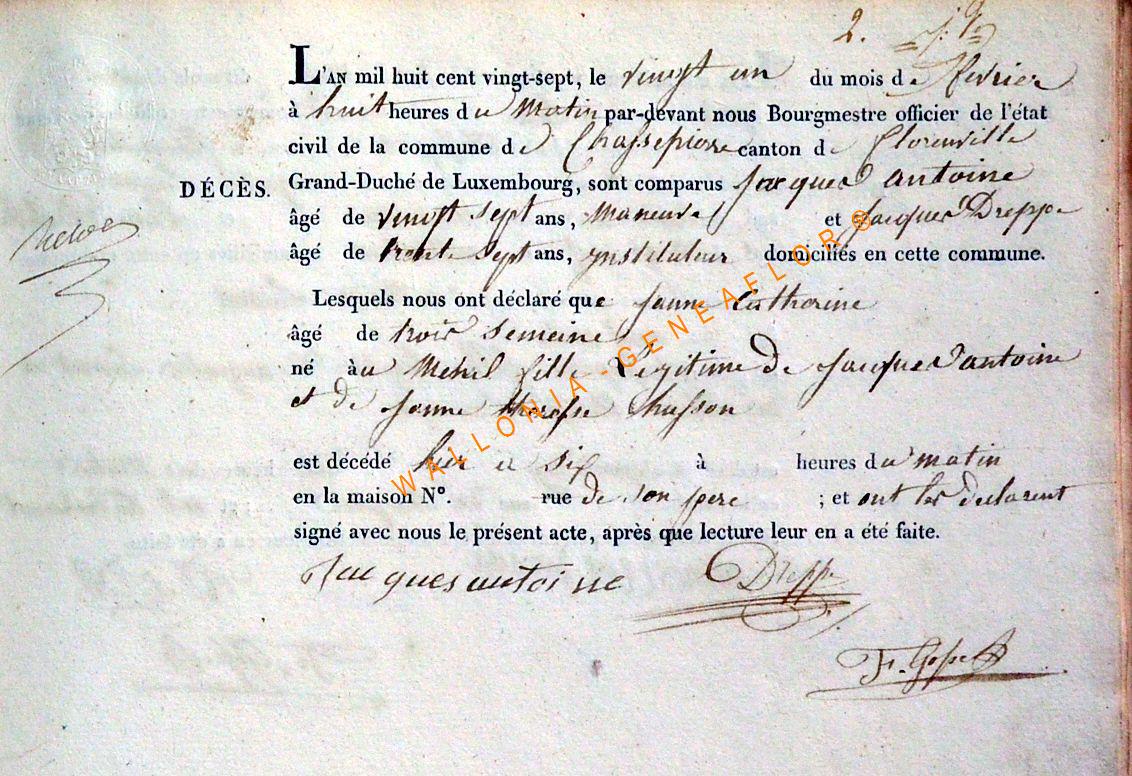 2.
L'AN mil huit cent vingt-sept, le vingt un du mois de Fevrier
à huit heures du Matin par-devant nous Bourgmestre officier de l'état
civil de la commune de Chassepierre canton de florenville
DÉCÈS. Grand-Duché de Luxembourg, sont comparus Jacques antoine
âgé de vingt sept ans, Maneuvre et Jacques Dreppe
âgé de trente sept ans, ynstituteur domiciliés en cette commune.
Lesquels nous ont déclaré que Janne Catherine
âgé de trois semeine
né àu Menil fille legitime de Jacques antoine
et de Janne therese husson
est décédé hier a six à heures du matin
en la maison N°. rue de son pere ; et ont les declarent
signé avec nous le présent acte, après que lecture leur en a été faite.
Jacques antoine Dreppe
WALLONIA-GENEAFLOR®